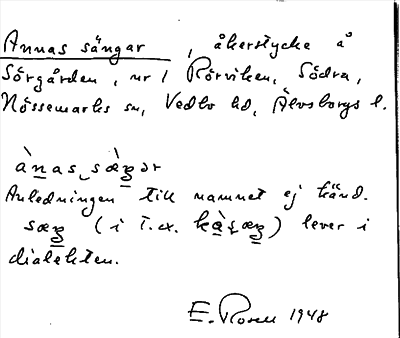 Annas sängar, åkerstycke å
Sörgården, nr 1 Rörviken, Södra,
Nössemarks sn, Vedbo hd, Älvsborgs l.
ànas sæ̀ŋər
Anledningen till namnet ej känd.
sæŋ (i t.ex. hà̱sæŋ) lever i
dialekten.
E. Rosell 1948